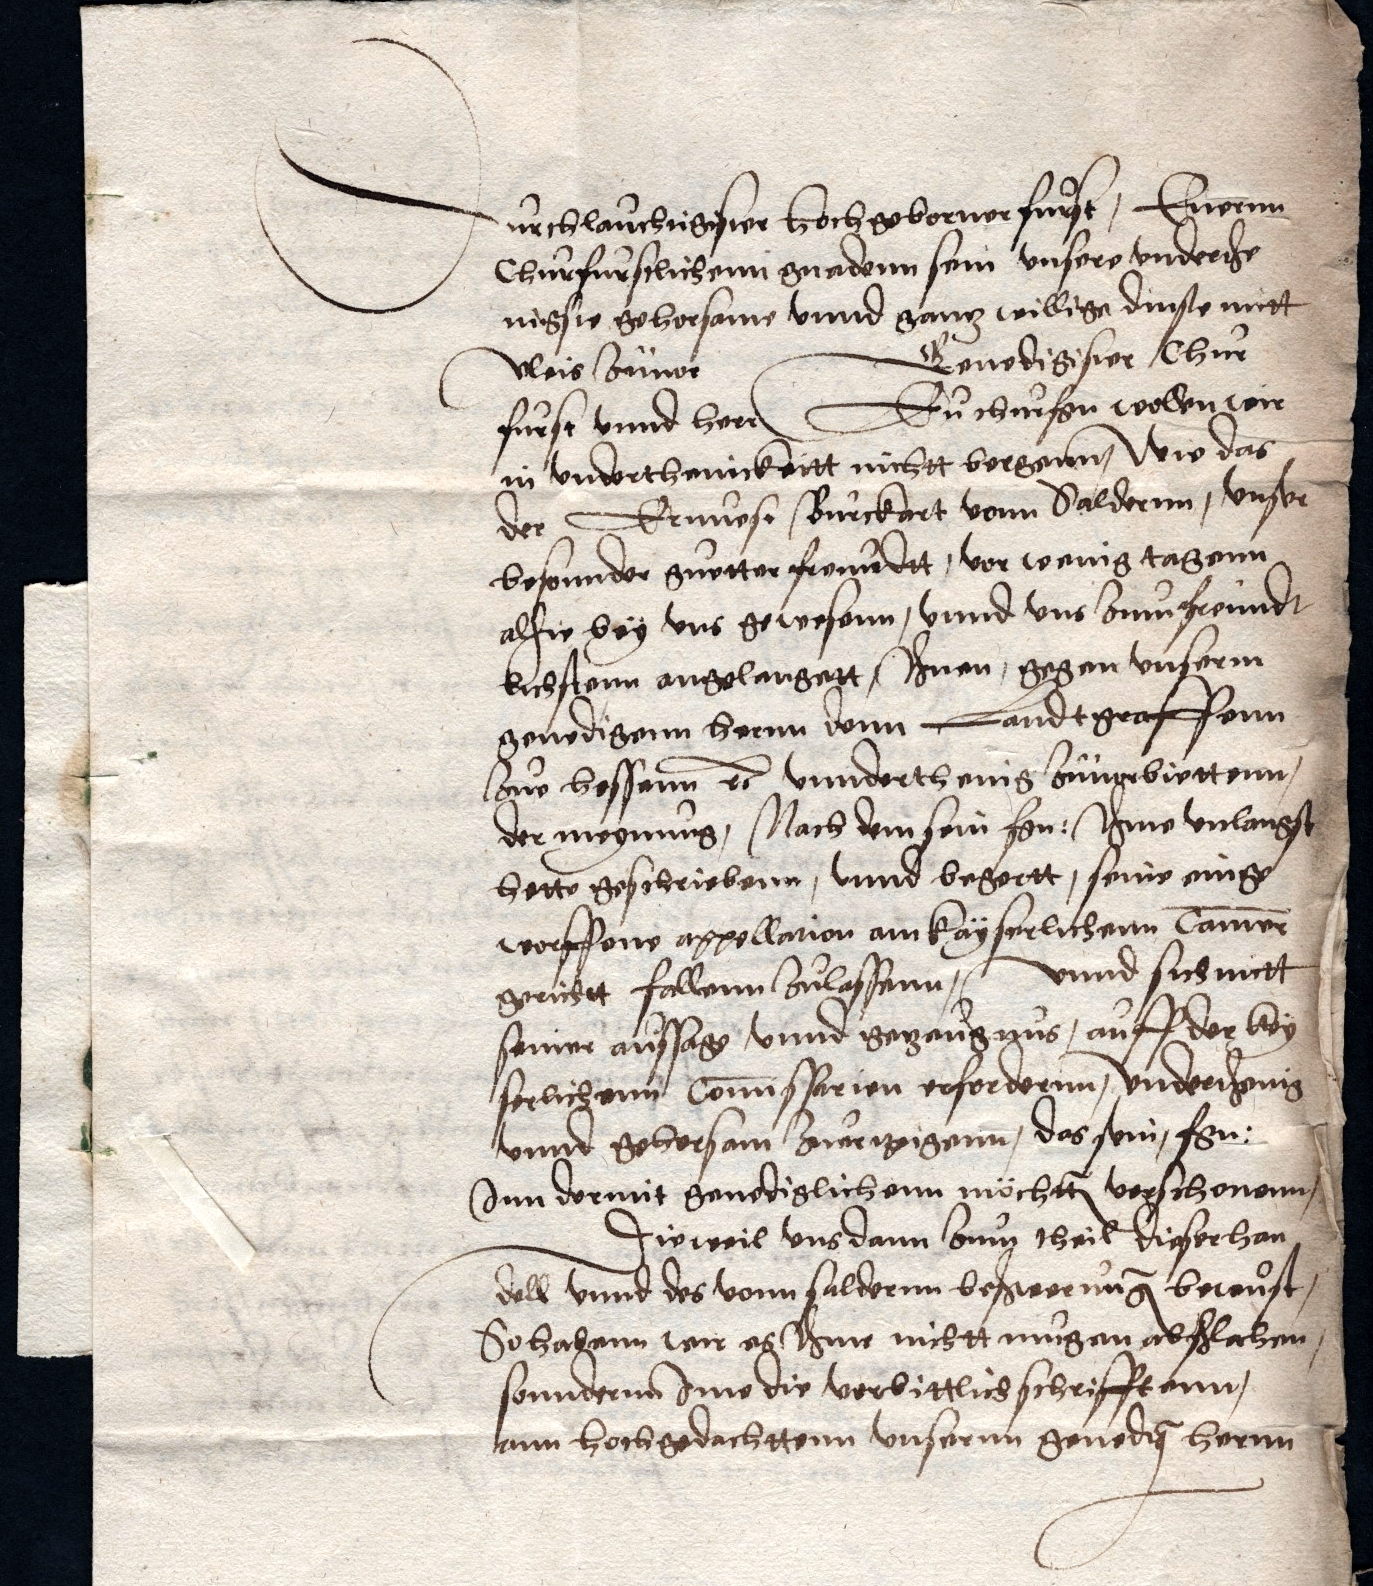 Durchlauchtigister hochgeborner furst, Euernn
Churfurstlichenn gnadenn sein unsere underthe
nigste gehorsame unnd gantz willige dinste mitt
vleis zuuor Genedigister Chur
furst unnd herr Eu churfgn wollen wir
in underthenickeitt nichtt bergenn, Wie das
der Ernuest Burckart vonn Saldernn, unser
besonnder guetter freundtt, vor wenig tagenn
alhie bey uns gewesenn, unnd uns zum freundt
lichstenn angelangett, Ihnen, gegen unserm
genedigenn hernn denn Landtgraffenn
zue hessenn rc unnderthenig zuuorbiettenn,
der meynung, Nach dem sein fgn: Ihme unlangst
hette geschriebenn, unnd begertt, seine einge
worffene appellation am kayserlichenn Camer
gerichtt fallenn zulassenn, unnd sich mitt
seiner aussage unnd getzeugnus, auff der key
serlichenn Comissarien erfordernn, underthenig
unnd gehorsam zuertzeigenn, das sein, fgn:
Inn dermit genediglichenn möchtt verschonenn,
Dieweil uns dann zum theil dieser han
dell unnd des vonn saldernn beschwerung bewust,
So habenn wir es Ihme nichtt mugen abschlahen,
sonndernn Ime die vorbittlich schrifftenn,
ann hochgedachttenn unsernn genedig hernn